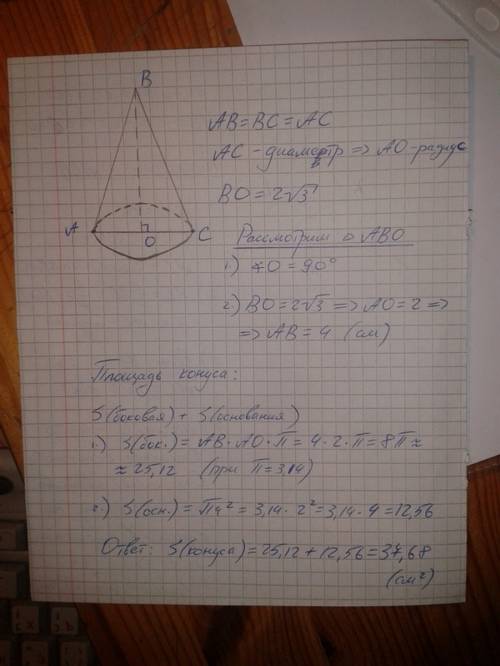 B
A
O
C
AB = BC = AC
AC - диаметр => AO - радиус
BO = 2√3
Рассмотрим △ ABO
1.) ∢O = 90°
2.) BO = 2√3 => AO = 2 =>
=> AB = 4 (см)
Площадь конуса:
S(боковая) + S(основания)
1.) S(бок.) = AB · AO · π = 4 · 2 · π = 8π ≈
≈ 25,12 (при π = 3,14)
2.) S(осн.) = πr² = 3,14 · 2² = 3,14 · 4 = 12,56
Ответ: S(конуса) = 25,12 + 12,56 = 37,68
(см²)